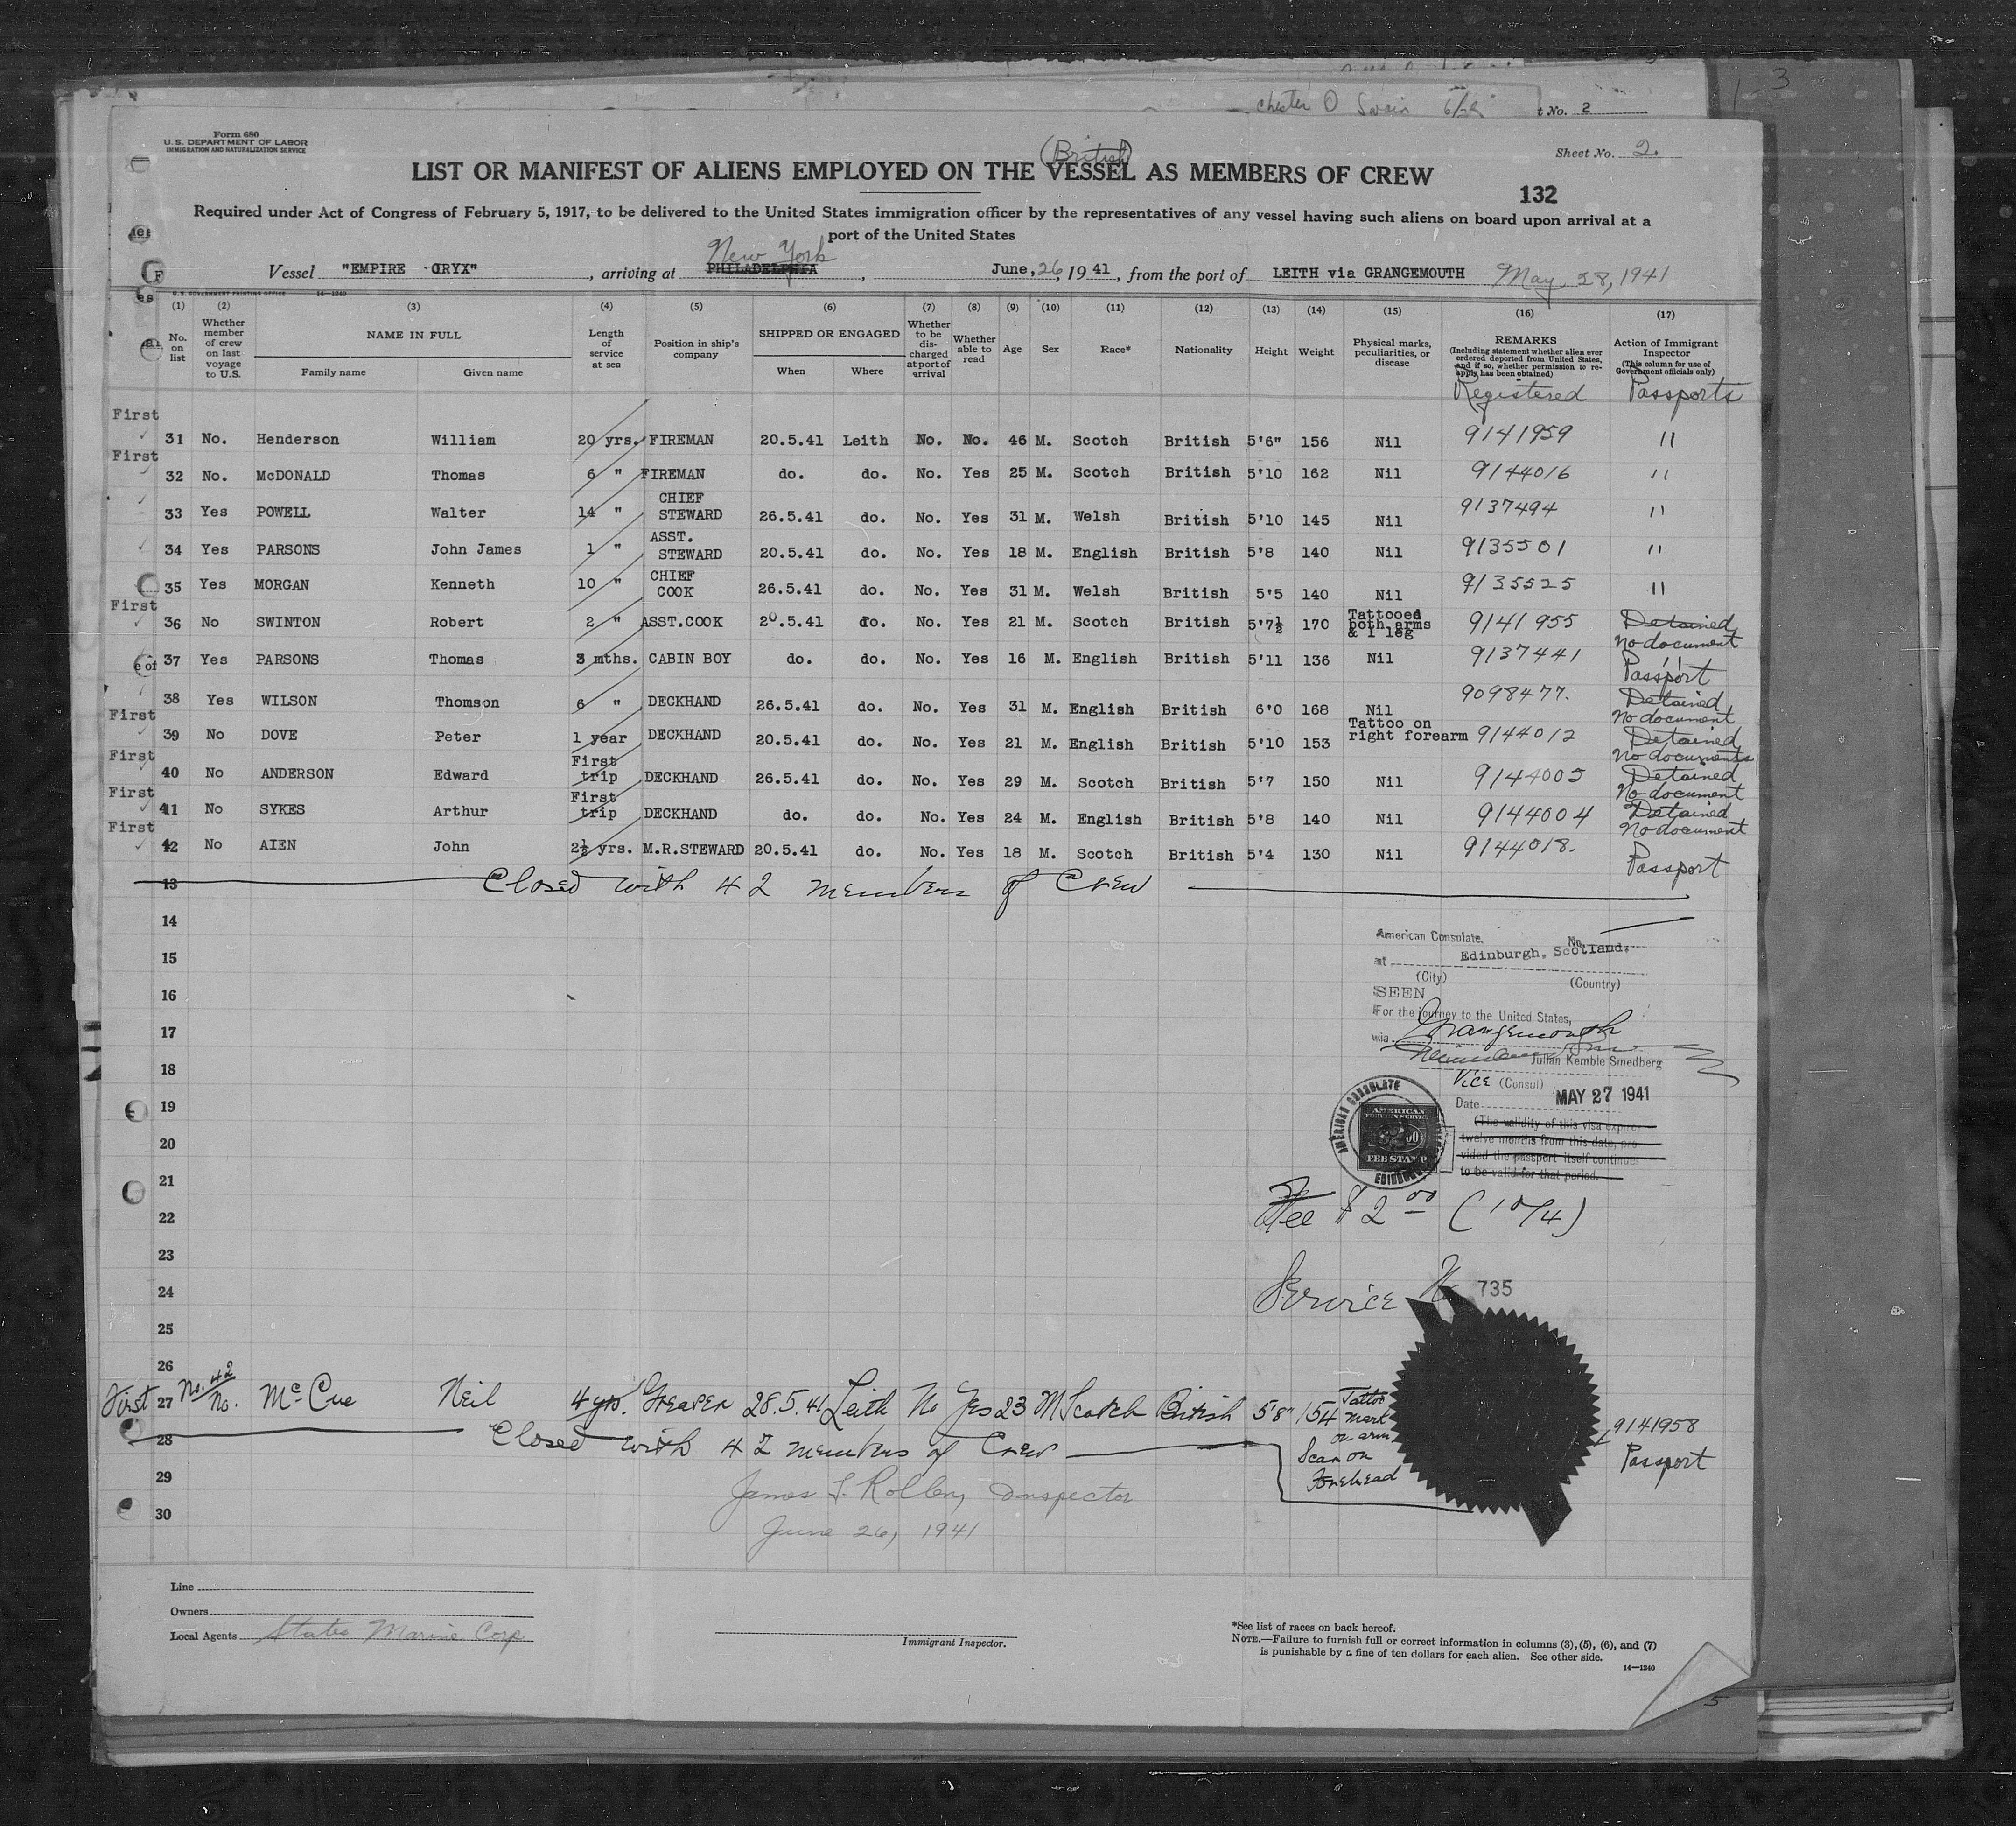 chester O Swain 6/25
t No. 2
3
Form 680
U. S. DEPARTMENT OF LABOR
IMMIGRATION AND NATURALIZATION SERVICE
Sheet No. 2.
(British)
LIST OR MANIFEST OF ALIENS EMPLOYED ON THE VESSEL AS MEMBERS OF CREW
132
Required under Act of Congress of February 5, 1917, to be delivered to the United States immigration officer by the representatives of any vessel having such aliens on board upon arrival at a
port of the United States
New York
Vessel "EMPIRE ORYX", arriving at PHILADELPHIA, June, 26, 1941, from the port of LEITH via GRANGEMOUTH May 28, 1941
U. S. GOVERNMENT PRINTING OFFICE 14—1240
(1) (2) (3) (4) (5) (6) (7) (8) (9) (10) (11) (12) (13) (14) (15) (16) (17)
No. on list
Whether member of crew on last voyage to U.S.
NAME IN FULL
Family name Given name
Length of service at sea
Position in ship's company
SHIPPED OR ENGAGED
When Where
Whether to be discharged at port of arrival
Whether able to read
Age
Sex
Race*
Nationality
Height
Weight
Physical marks, peculiarities, or disease
REMARKS
(Including statement whether alien ever ordered deported from United States, and if so, whether permission to reapply has been obtained)
Action of Immigrant Inspector
(This column for use of Government officials only)
Registered Passports
First
31 No. Henderson William 20 yrs. FIREMAN 20.5.41 Leith No. No. 46 M. Scotch British 5'6" 156 Nil 9141959 "
First
32 No. McDONALD Thomas 6 " FIREMAN do. do. No. Yes 25 M. Scotch British 5'10 162 Nil 9144016 "
33 Yes POWELL Walter 14 " CHIEF STEWARD 26.5.41 do. No. Yes 31 M. Welsh British 5'10 145 Nil 9137494 "
34 Yes PARSONS John James 1 " ASST. STEWARD 20.5.41 do. No. Yes 18 M. English British 5'8 140 Nil 9135501 "
35 Yes MORGAN Kenneth 10 " CHIEF COOK 26.5.41 do. No. Yes 31 M. Welsh British 5'5 140 Nil 9135525 "
First
36 No SWINTON Robert 2 " ASST.COOK 20.5.41 do. No. Yes 21 M. Scotch British 5'7½ 170 Tattooed both arms & 1 leg 9141955 Detained No document
37 Yes PARSONS Thomas 3 mths. CABIN BOY do. do. No. Yes 16 M. English British 5'11 136 Nil 9137441 " Passport
38 Yes WILSON Thomson 6 " DECKHAND 26.5.41 do. No. Yes 31 M. English British 6'0 168 Nil 9098477. Detained No document
First
39 No DOVE Peter 1 year DECKHAND 20.5.41 do. No. Yes 21 M. English British 5'10 153 Tattoo on right forearm 9144012 Detained No documents
First
40 No ANDERSON Edward First trip DECKHAND 26.5.41 do. No. Yes 29 M. Scotch British 5'7 150 Nil 9144005 Detained No document
First
41 No SYKES Arthur First trip DECKHAND do. do. No. Yes 24 M. English British 5'8 140 Nil 9144004 Detained No document
First
42 No AIEN John 2½ yrs. M.R.STEWARD 20.5.41 do. No. Yes 18 M. Scotch British 5'4 130 Nil 9144018. Passport
13 Closed with 42 members of Crew
14
15
16
17
18
19
20
21
22
23
24
25
26
American Consulate. No.
at Edinburgh, Scotland.
(City) (Country)
SEEN
For the journey to the United States,
via Grangemouth
Julian Kemble Smedberg
Vice (Consul)
Date MAY 27 1941
(The validity of this visa expires
twelve months from this date, pro
vided the passport itself continues
to be valid for that period.
AMERICAN CONSULATE
AMERICAN
FOREIGN SERVICE
FEE STAMP
EDINBURGH
Fee $2 00 (10/4)
Service No 735
First 27 No. 42 No. McCue Neil 4 yrs. Greaser 28.5.41 Leith No Yes 23 M Scotch British 5'8" 154 Tattoo mark on arm Scar on Forehead 9141958 Passport
28 Closed with 42 members of Crew
29
30
James F. Rollen, Inspector
June 26, 1941
Line
Owners
Local Agents States Marine Corp
Immigrant Inspector.
*See list of races on back hereof.
NOTE.—Failure to furnish full or correct information in columns (3), (5), (6), and (7)
is punishable by a fine of ten dollars for each alien. See other side.
14—1240
5